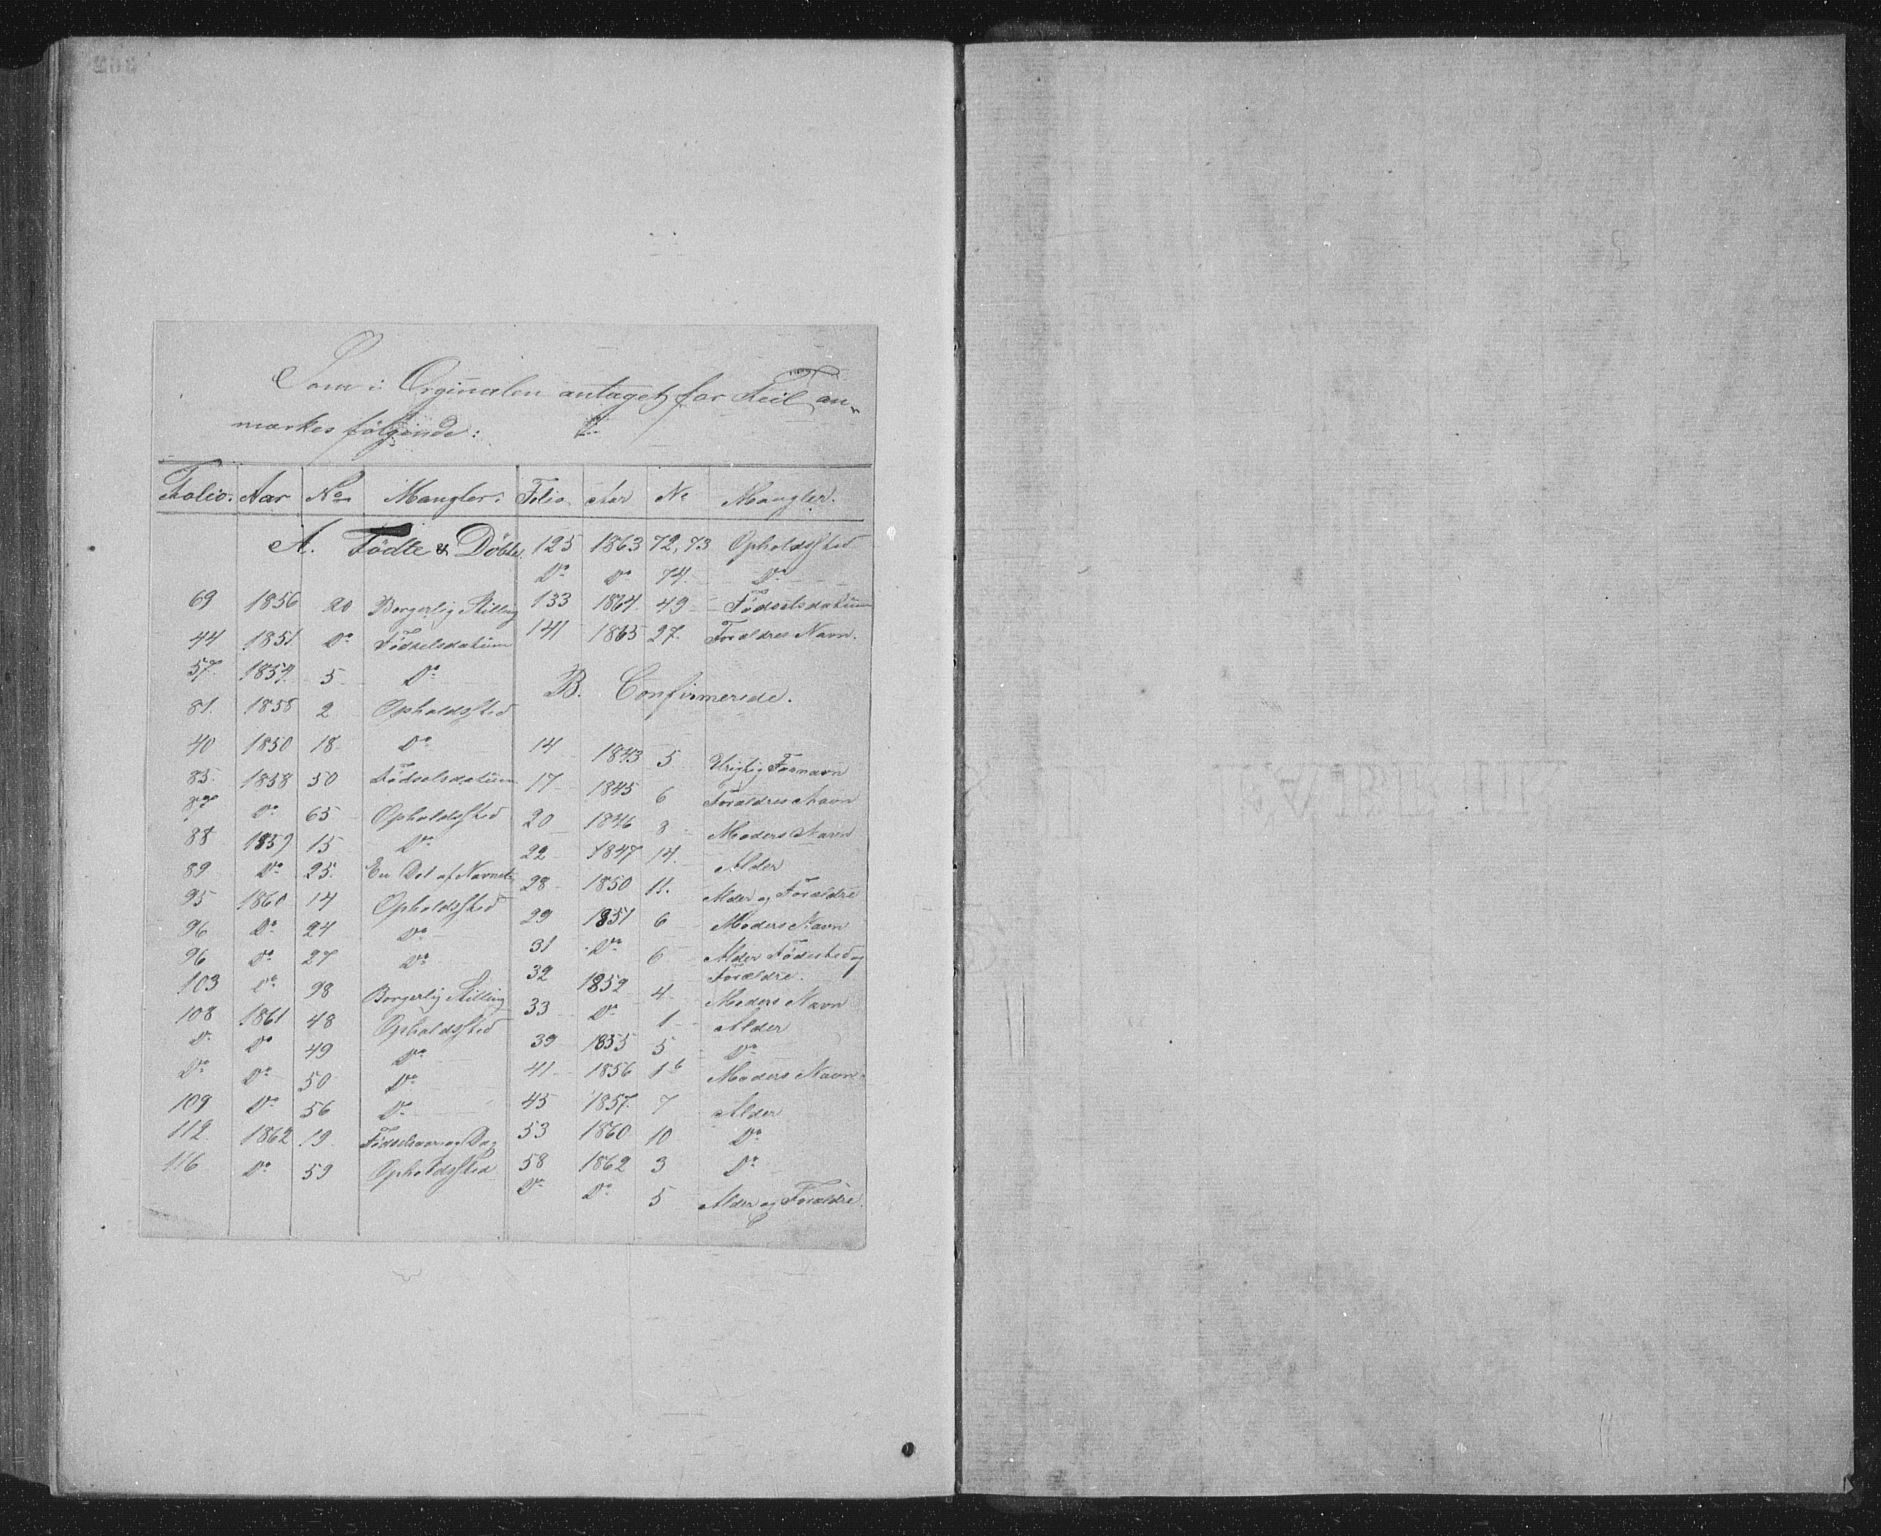 Som i Orginalen antaget for Feil an-
mærkes følgende:
Folio. Aar No Mangler.
A. Fødte & Døbte
69 1856 20 Borgerlig Stilling
44 1851 Do Fødselsdatum
57 1854 5 Do
81. 1858 2 Opholdssted
40 1850 18 Do
85. 1858 50 Fødselsdatum
87 Do 65 Opholdssted
88 1859 15 Do
89 Do 25. En Del af Navnet
95 1860 14 Opholdssted
96 Do 24 Do
96 Do 27 Do
103 Do 98 Borgerlig Stilling
108 1861 48 Opholdssted
Do Do 49 Do
Do Do 50 Do
109 Do 56 Do
112. 1862 19. Fødselsaar og Dag
116 Do 59 Opholdssted
Folio Aar No Mangler.
125 1863 72, 73 Opholdssted
Do Do 74. Do
133 1864 49 Fødselsdatum
141 1865 27. Forældres Navn.
B. Confirmerede.
14 1843 5 Urigtig Fornavn
17 1845 6 Forældres Navn
20 1846 8 Moders Navn
22 1847 14. Alder
28 1850 11. Alder og Forældre
29 1851 6 Moders Navn
31 Do 6 Alder Fødested og
Forældre.
32 1852 4 Moders Navn
33 Do 1 Alder
39 1855 5 Do
41 1856 16 Moders Navn
45 1857 7 Alder
53 1860 10 Do
58 1862 3 Do
Do Do 5 Alder og Forældre.